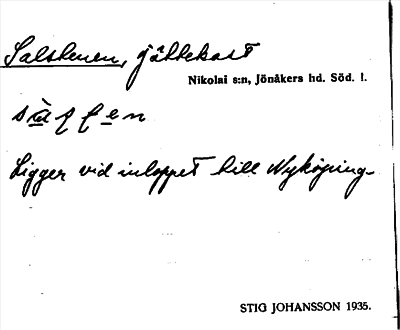 Saltstenen, jättekast
Nikolai s:n, Jönåkers hd. Söd. l.
Ligger vid inloppet till Nyköping.
STIG JOHANSSON 1935.